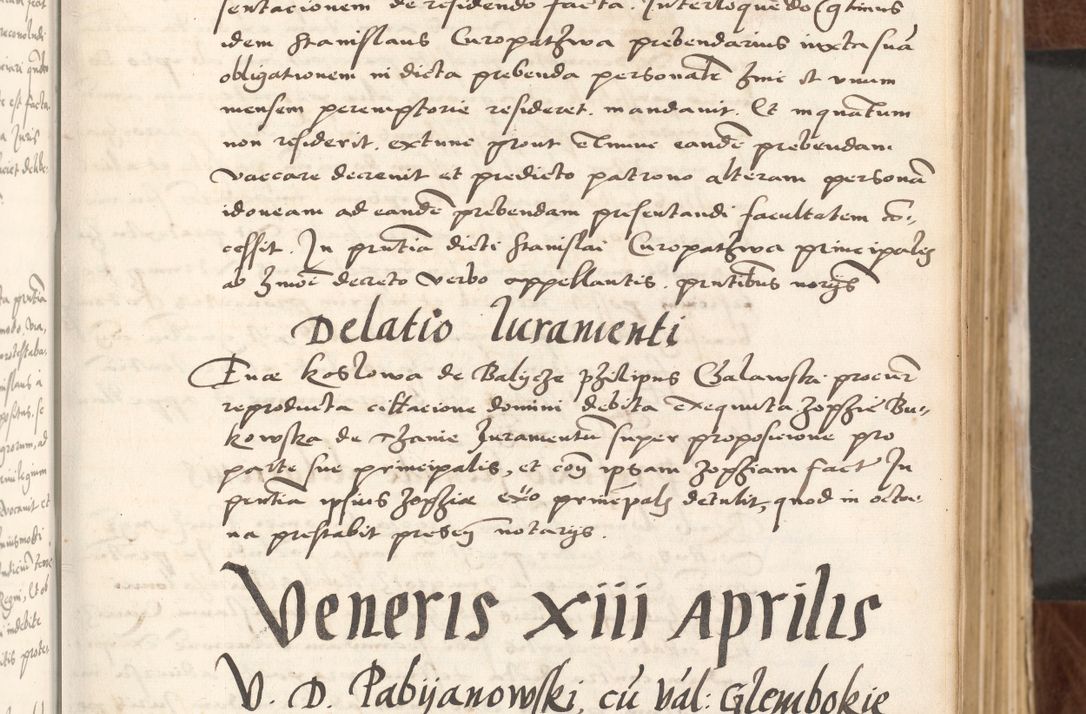 sentacionem de residendo facta. Interloquēdo
idem Stanislaus Curopathwa prebendarius iuxta suā
obligationem in dicta prebenda personalr̄ hinc et unum
mensem peremptorie resideret. mandavit. Et inquātum
non resederit. extunc prout exnunc eandē prebendam
vaccare decrevit et predicto patrono alteram personā
idoneam ad eandē prebendam presentandi facultatem cō-
cessit. In prntia dicti Stanislai Curopathwa principalis
ab hmōi decreto verbo appellantis. prntibus notarijs
Delatio Iuramenti
Enae Koslowa de Balycze philipus Galawski procur̄
reproducta cittacione domini debita exequuta Zophie Bu-
kowska de Thanie Iuramentū super proposicione pro
parte sue principalis, et cōn ipsam Zophiam fact In
prntia ipsius Zophiae ex̄o principals detulit, quod in octa-
va prestabit presen̄ notarijs.
Veneris xiii Aprilis
V. D. Pabijanowski, cū Val: Glembokie